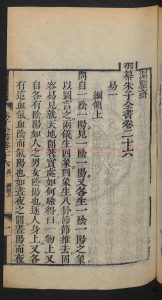 淵鑒齋
御纂朱子全書卷二十六
易一
綱領上
問自一陰一陽見一陰一陽又各生一陰一陽之象
以圖言之兩儀生四象四象生八卦節節推去固
容易見就天地間著實處如何驗得曰一物上又
自各有陰陽如人之男女陰陽也逐人身上又各
有這血氣血陰而氣陽也如晝夜之間晝陽而夜